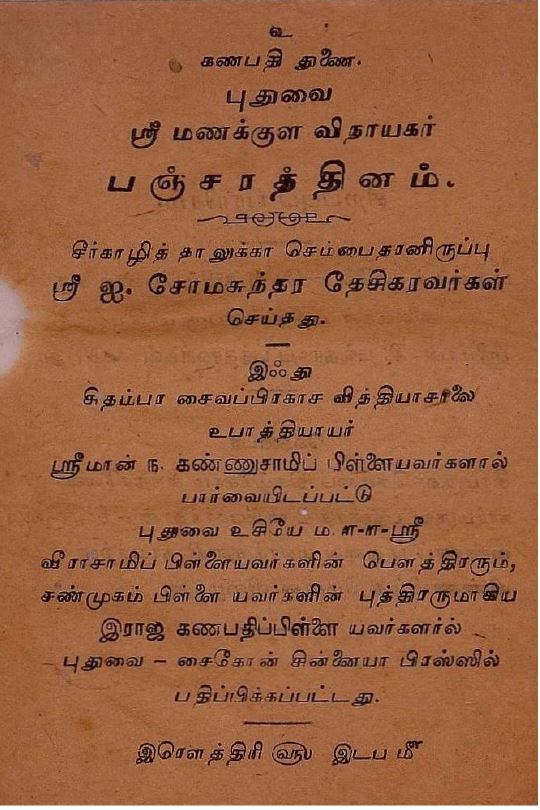 உ
கணபதி துணை.
புதுவை
ஸ்ரீ மணக்குள விநாயகர்
பஞ்சரத்தினம்.
சீர்காழித் தாலுக்கா செம்பைதானிருப்பு
ஸ்ரீ ஐ. சோமசுந்தர தேசிகரவர்கள்
செய்தது.
இஃது
சிதம்பர சைவப்பிரகாச வித்தியாசாலை
உபாத்தியாயர்
ஸ்ரீமான் ந. கண்ணுசாமிப் பிள்ளையவர்களால்
பார்வையிடப்பட்டு
புதுவை உசியே ம-ள-ள-ஸ்ரீ
வீராசாமிப் பிள்ளையவர்களின் பௌத்திரரும்,
சண்முகம் பிள்ளை யவர்களின் புத்திரருமாகிய
இராஜ கணபதிப்பிள்ளை யவர்களால்
புதுவை – சைகோன் சின்னையா பிரஸ்ஸில்
பதிப்பிக்கப்பட்டது.
இரௌத்திரி ௵ இடப ௴